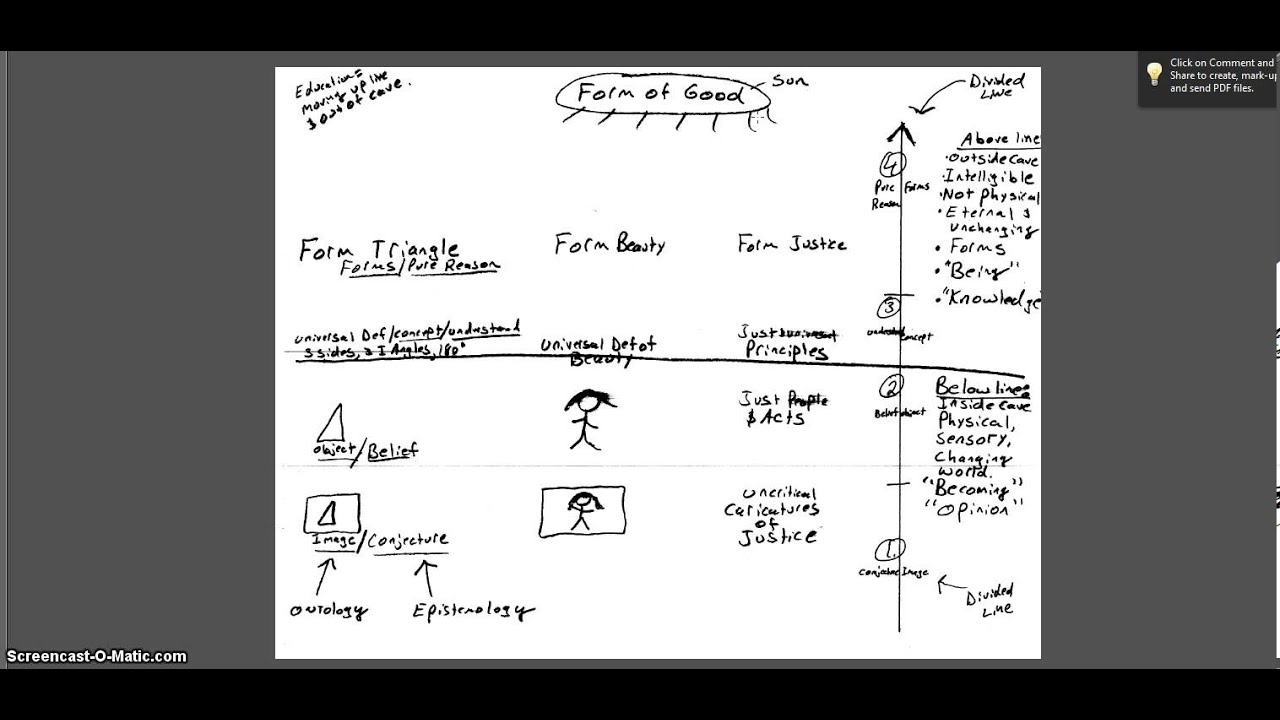 Education =
moving up line
& out of cave.
Form of Good
Sun
Divided
Line
Click on Comment and
Share to create, mark-up
and send PDF files.
4
Pure Forms
Reason
Above line
• Outside cave
• Intelligible
• Not Physical
• Eternal &
unchanging
• Forms
• "Being"
• "Knowledge"
Form Triangle
Forms/Pure Reason
Form Beauty
Form Justice
3
Concept
universal Def/concept/understand
3 sides, 3 I Angles, 180°
universal Def of
Beauty
Just
Principles
2
Belief object
Below line
Inside cave
Physical,
Sensory,
Changing
world.
"Becoming"
"Opinion"
object/Belief
Just People
& Acts
Image/Conjecture
uncritical
Caricatures
of
Justice
1.
Conjecture Image
Divided
Line
Ontology
Epistemology
Screencast-O-Matic.com